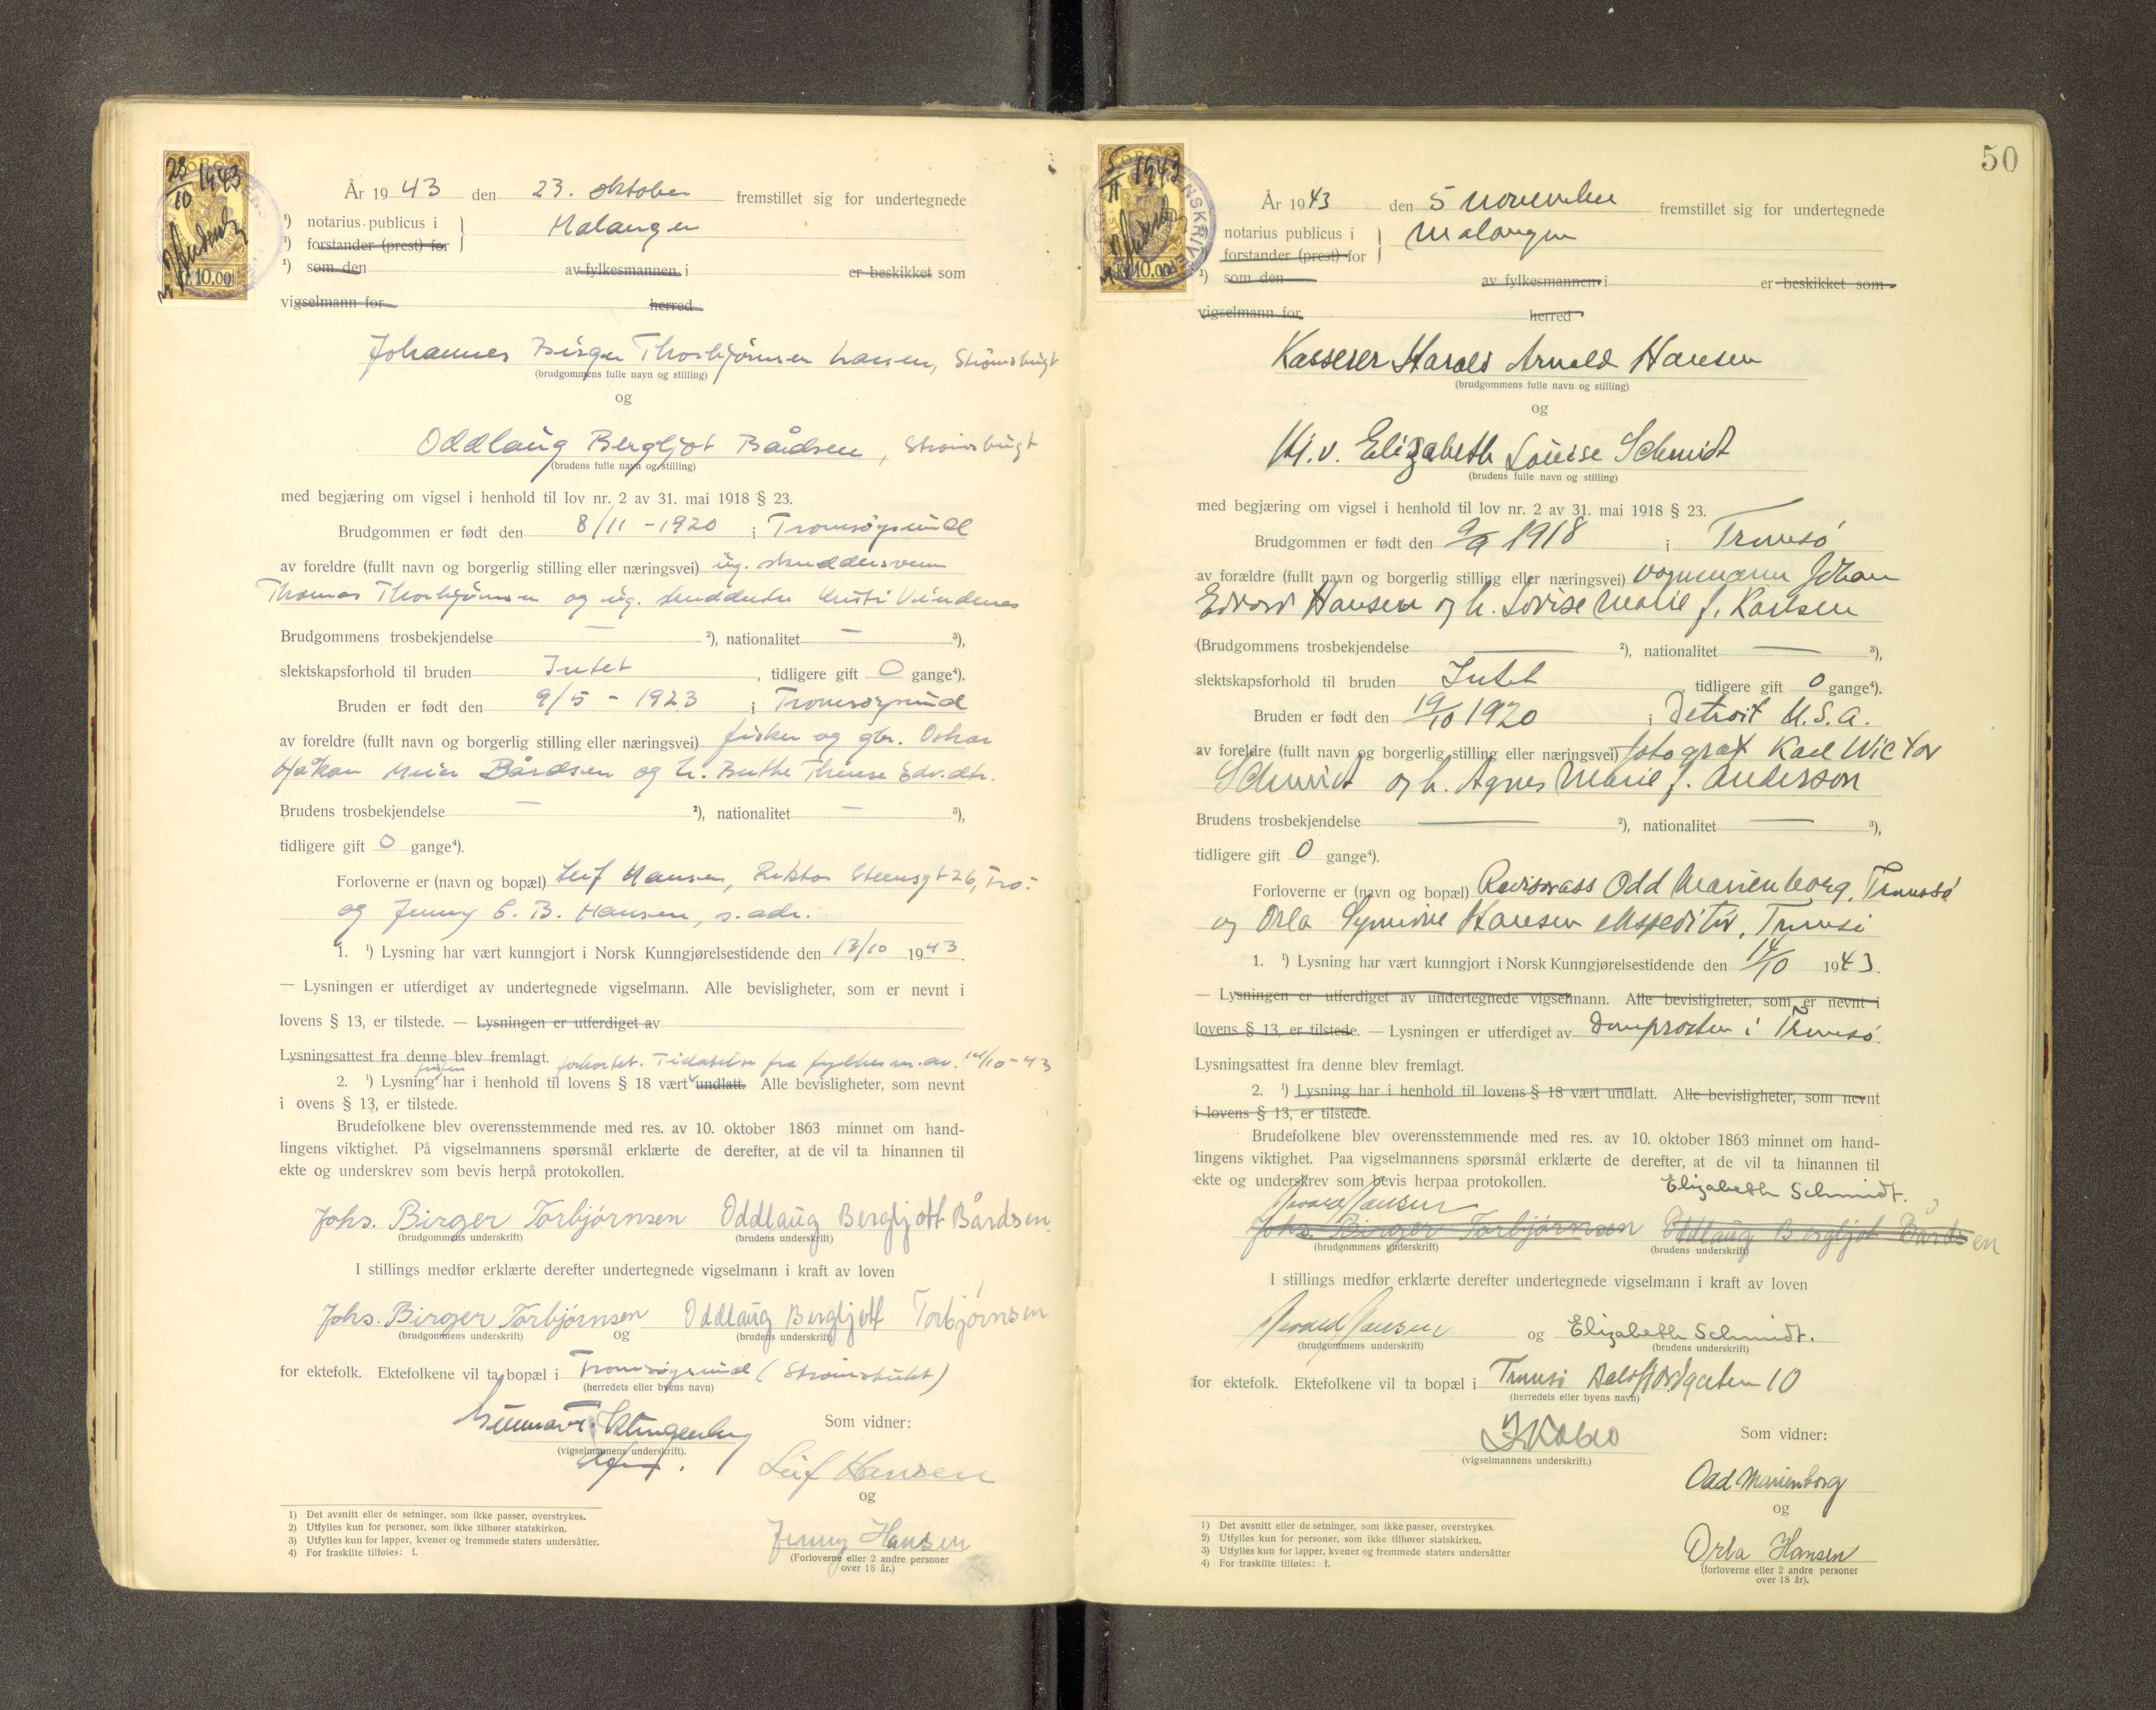 23/10 1943
kr 10.00
År 1943 den 23. oktober fremstillet sig for undertegnede
¹) notarius publicus i Malangen
¹) forstander (prest) for
¹) som den av fylkesmannen i er beskikket som
vigselmann for herred
Johannes Birger Thorbjørnsen Hansen, Strømsbugt
(brudgommens fulle navn og stilling)
og
Oddlaug Bergljot Bårdsen, Strømsbugt
(brudens fulle navn og stilling)
med begjæring om vigsel i henhold til lov nr. 2 av 31. mai 1918 § 23.
Brudgommen er født den 8/11 - 1920 i Tromsøysund
av foreldre (fullt navn og borgerlig stilling eller næringsvei) ug. skreddersvenn
Thomas Thorbjørnsen og ug.
Brudgommens trosbekjendelse — ²), nationalitet — ³),
slektskapsforhold til bruden Intet, tidligere gift 0 gange⁴).
Bruden er født den 9/5 - 1923 i Tromsøysund
av foreldre (fullt navn og borgerlig stilling eller næringsvei) fisker og gbr. Oskar
Håkon Meier Bårdsen og h. Berthe Therese Edv.dtr.
Brudens trosbekjendelse — ²), nationalitet — ³),
tidligere gift 0 gange⁴).
Forloverne er (navn og bopæl) Leif Hansen, Rektor Steensgt 26, Tro.
og Jenny C. B. Hansen, s. adr.
1. ¹) Lysning har vært kunngjort i Norsk Kunngjørelsestidende den 13/10 1943.
— Lysningen er utferdiget av undertegnede vigselmann. Alle bevisligheter, som er nevnt i
lovens § 13, er tilstede. — Lysningen er utferdiget av
Lysningsattest fra denne blev fremlagt. forkortet. Tilladelse fra fylkesm. av 14/10 - 43
2. ¹) Lysningsfristen har i henhold til lovens § 18 vært undlatt. Alle bevisligheter, som nevnt
i ovens § 13, er tilstede.
Brudefolkene blev overensstemmende med res. av 10. oktober 1863 minnet om hand-
lingens viktighet. På vigselmannens spørsmål erklærte de derefter, at de vil ta hinannen til
ekte og underskrev som bevis herpå protokollen.
Johs. Birger Torbjørnsen Oddlaug Bergljott Bårdsen.
(brudgommens underskrift) (brudens underskrift)
I stillings medfør erklærte derefter undertegnede vigselmann i kraft av loven
Johs. Birger Torbjørnsen og Oddlaug Bergljott Torbjørnsen
(brudgommens underskrift) (brudens underskrift)
for ektefolk. Ektefolkene vil ta bopæl i Tromsøysund (Strømsbukt)
(herredets eller byens navn)
Gunnar Klingenberg
(vigselmannens underskrift).
Som vidner:
Leif Hansen
og
Jenny Hansen
(Forloverne eller 2 andre personer
over 18 år.)
1) Det avsnitt eller de setninger, som ikke passer, overstrykes.
2) Utfylles kun for personer, som ikke tilhører statskirken.
3) Utfylles kun for lapper, kvener og fremmede staters undersåtter.
4) For fraskilte tilføies: f.
50
5/11 1943
kr 10.00
År 1943 den 5 november fremstillet sig for undertegnede
notarius publicus i Malangen
forstander (prest) for
¹) som den av fylkesmannen i er beskikket som
vigselmann for herred
Kasserer Harald Arnold Hansen
(brudgommens fulle navn og stilling)
og
Elizabeth Louise Schmidt
(brudens fulle navn og stilling)
med begjæring om vigsel i henhold til lov nr. 2 av 31. mai 1918 § 23.
Brudgommen er født den 9/9 1918 i Tromsø
av forældre (fullt navn og borgerlig stilling eller næringsvei) vognmann Johan
Edvard Hansen og h. Lovise Marie f. Karlsen
(Brudgommens trosbekjendelse — ²), nationalitet — ³),
slektskapsforhold til bruden Intet tidligere gift 0 gange⁴).
Bruden er født den 19/10 1920 i Detroit U.S.A.
av foreldre (fullt navn og borgerlig stilling eller næringsvei) fotograf Karl Victor
Schmidt og h. Agnes Marie f. Anderson
Brudens trosbekjendelse — ²), nationalitet — ³),
tidligere gift 0 gange⁴).
Forloverne er (navn og bopæl) Revisorass Odd Marienborg, Tromsø
og Orla Hansen ekspeditør, Tromsø
1. ¹) Lysning har vært kunngjort i Norsk Kunngjørelsestidende den 14/10 1943.
— Lysningen er utferdiget av undertegnede vigselmann. Alle bevisligheter, som er nevnt i
lovens § 13, er tilstede. — Lysningen er utferdiget av Domprosten i Tromsø.
Lysningsattest fra denne blev fremlagt.
2. ¹) Lysning har i henhold til lovens § 18 vært undlatt. Alle bevisligheter, som nevnt
i lovens § 13, er tilstede.
Brudefolkene blev overensstemmende med res. av 10. oktober 1863 minnet om hand-
lingens viktighet. Paa vigselmannens spørsmål erklærte de derefter, at de vil ta hinannen til
ekte og underskrev som bevis herpaa protokollen.
Harald Hansen Elizabeth Schmidt.
Johs. Birger Torbjørnsen Oddlaug Bergljot Bårdsen
(brudgommens underskrift) (brudens underskrift)
I stillings medfør erklærte derefter undertegnede vigselmann i kraft av loven
Harald Hansen og Elizabeth Schmidt.
(brudgommens underskrift) (brudens underskrift)
for ektefolk. Ektefolkene vil ta bopæl i Tromsø Balsfjordgaten 10
(herredets eller byens navn)
(vigselmannens underskrift.)
Som vidner:
Odd Marienborg
og
Orla Hansen
(forloverne eller 2 andre personer
over 18 år).
1) Det avsnitt eller de setninger, som ikke passer, overstrykes.
2) Utfylles kun for personer, som ikke tilhører statskirken.
3) Utfylles kun for lapper, kvener og fremmede staters undersåtter
4) For fraskilte tilføies: f.